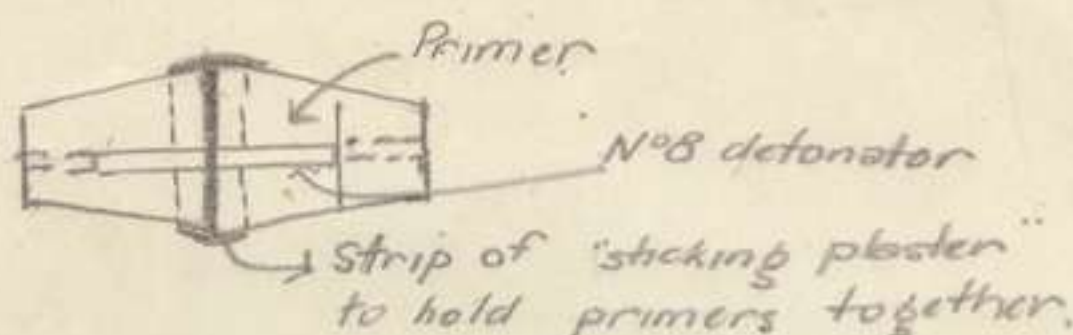 Primer
Nº8 detonator
Strip of "sticking plaster"
to hold primers together.